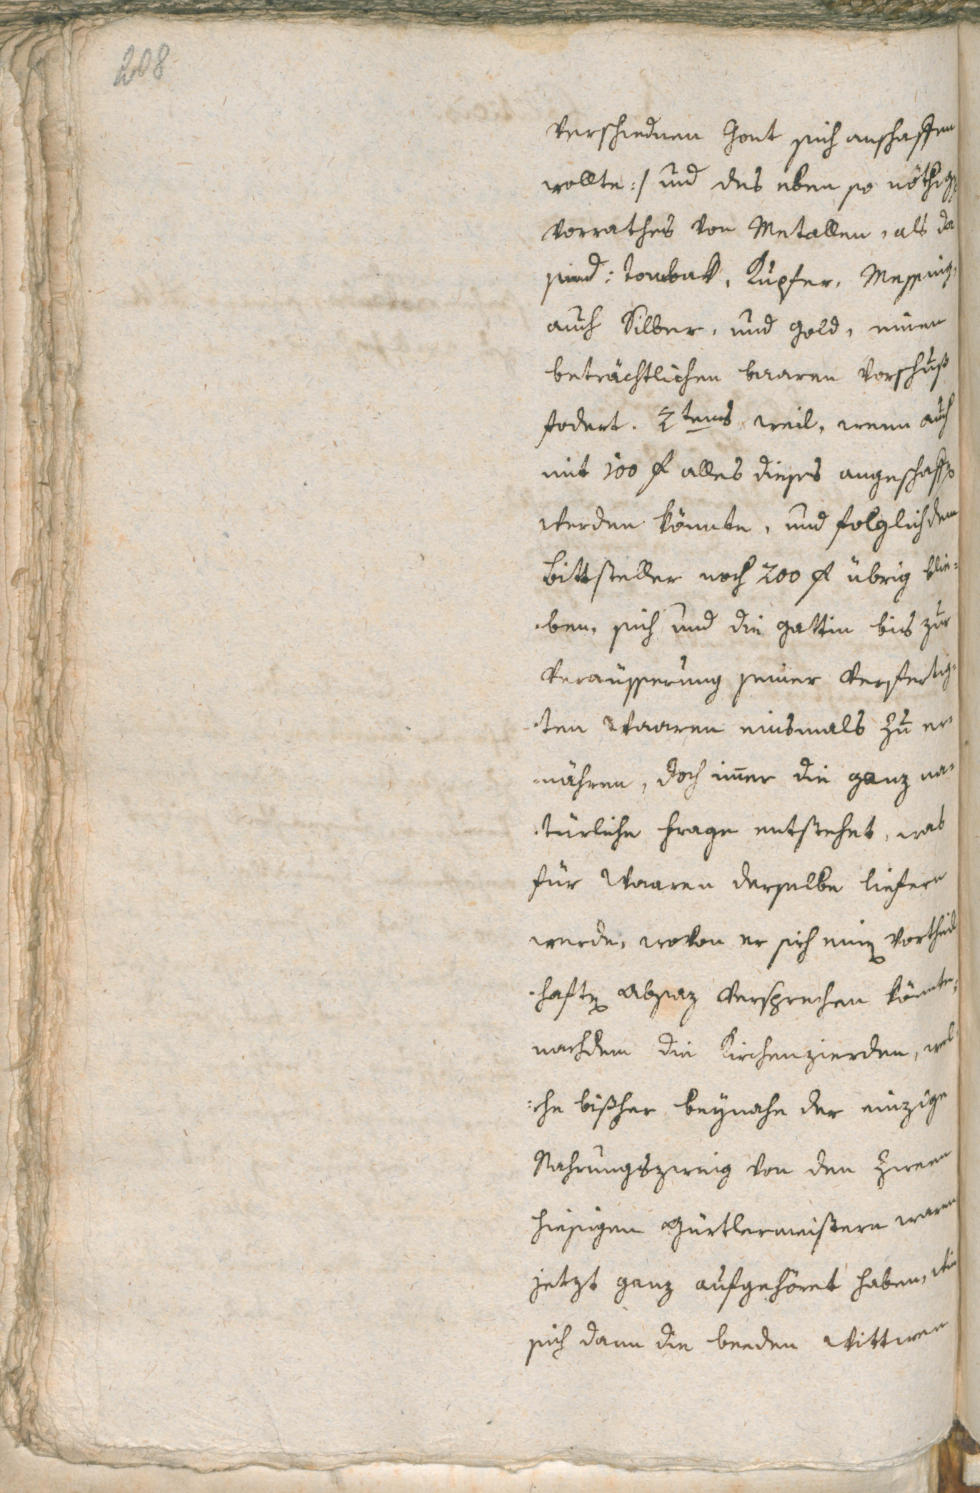 208
verschiednen sich anschaffen
wollte :/ und des eben so nöthig
Vorrathes von Metallen, als da
sind: Tomback, Kupfer, Messing,
auch Silber, und Gold, einen
beträchtlichen baaren Vorschuß
fodert. 2tens weil, wenn auch
mit 100 f alles dieses angeschafft
werden könnte, und folglich dem
Bittsteller noch 200 f übrig blie=
=ben, sich und die gattin bis zur
Veräusserung seiner verfertig=
=ten Waaren einsmals zu er=
=nähren, doch im̅er die ganz na=
=türliche Frage entstehet, was
für Waaren derselbe liefern
werde, wovon er sich einen vortheil
=haften Absaz versprechen könnte,
nachdem die Kirchenzierden, wel
=che bißher beynahe der einzige
Nahrungszweig von den zween
hiesigen Gürtlermeistern waren
jetzt ganz aufgehöret haben, wie
sich dann die beeden Wittwen